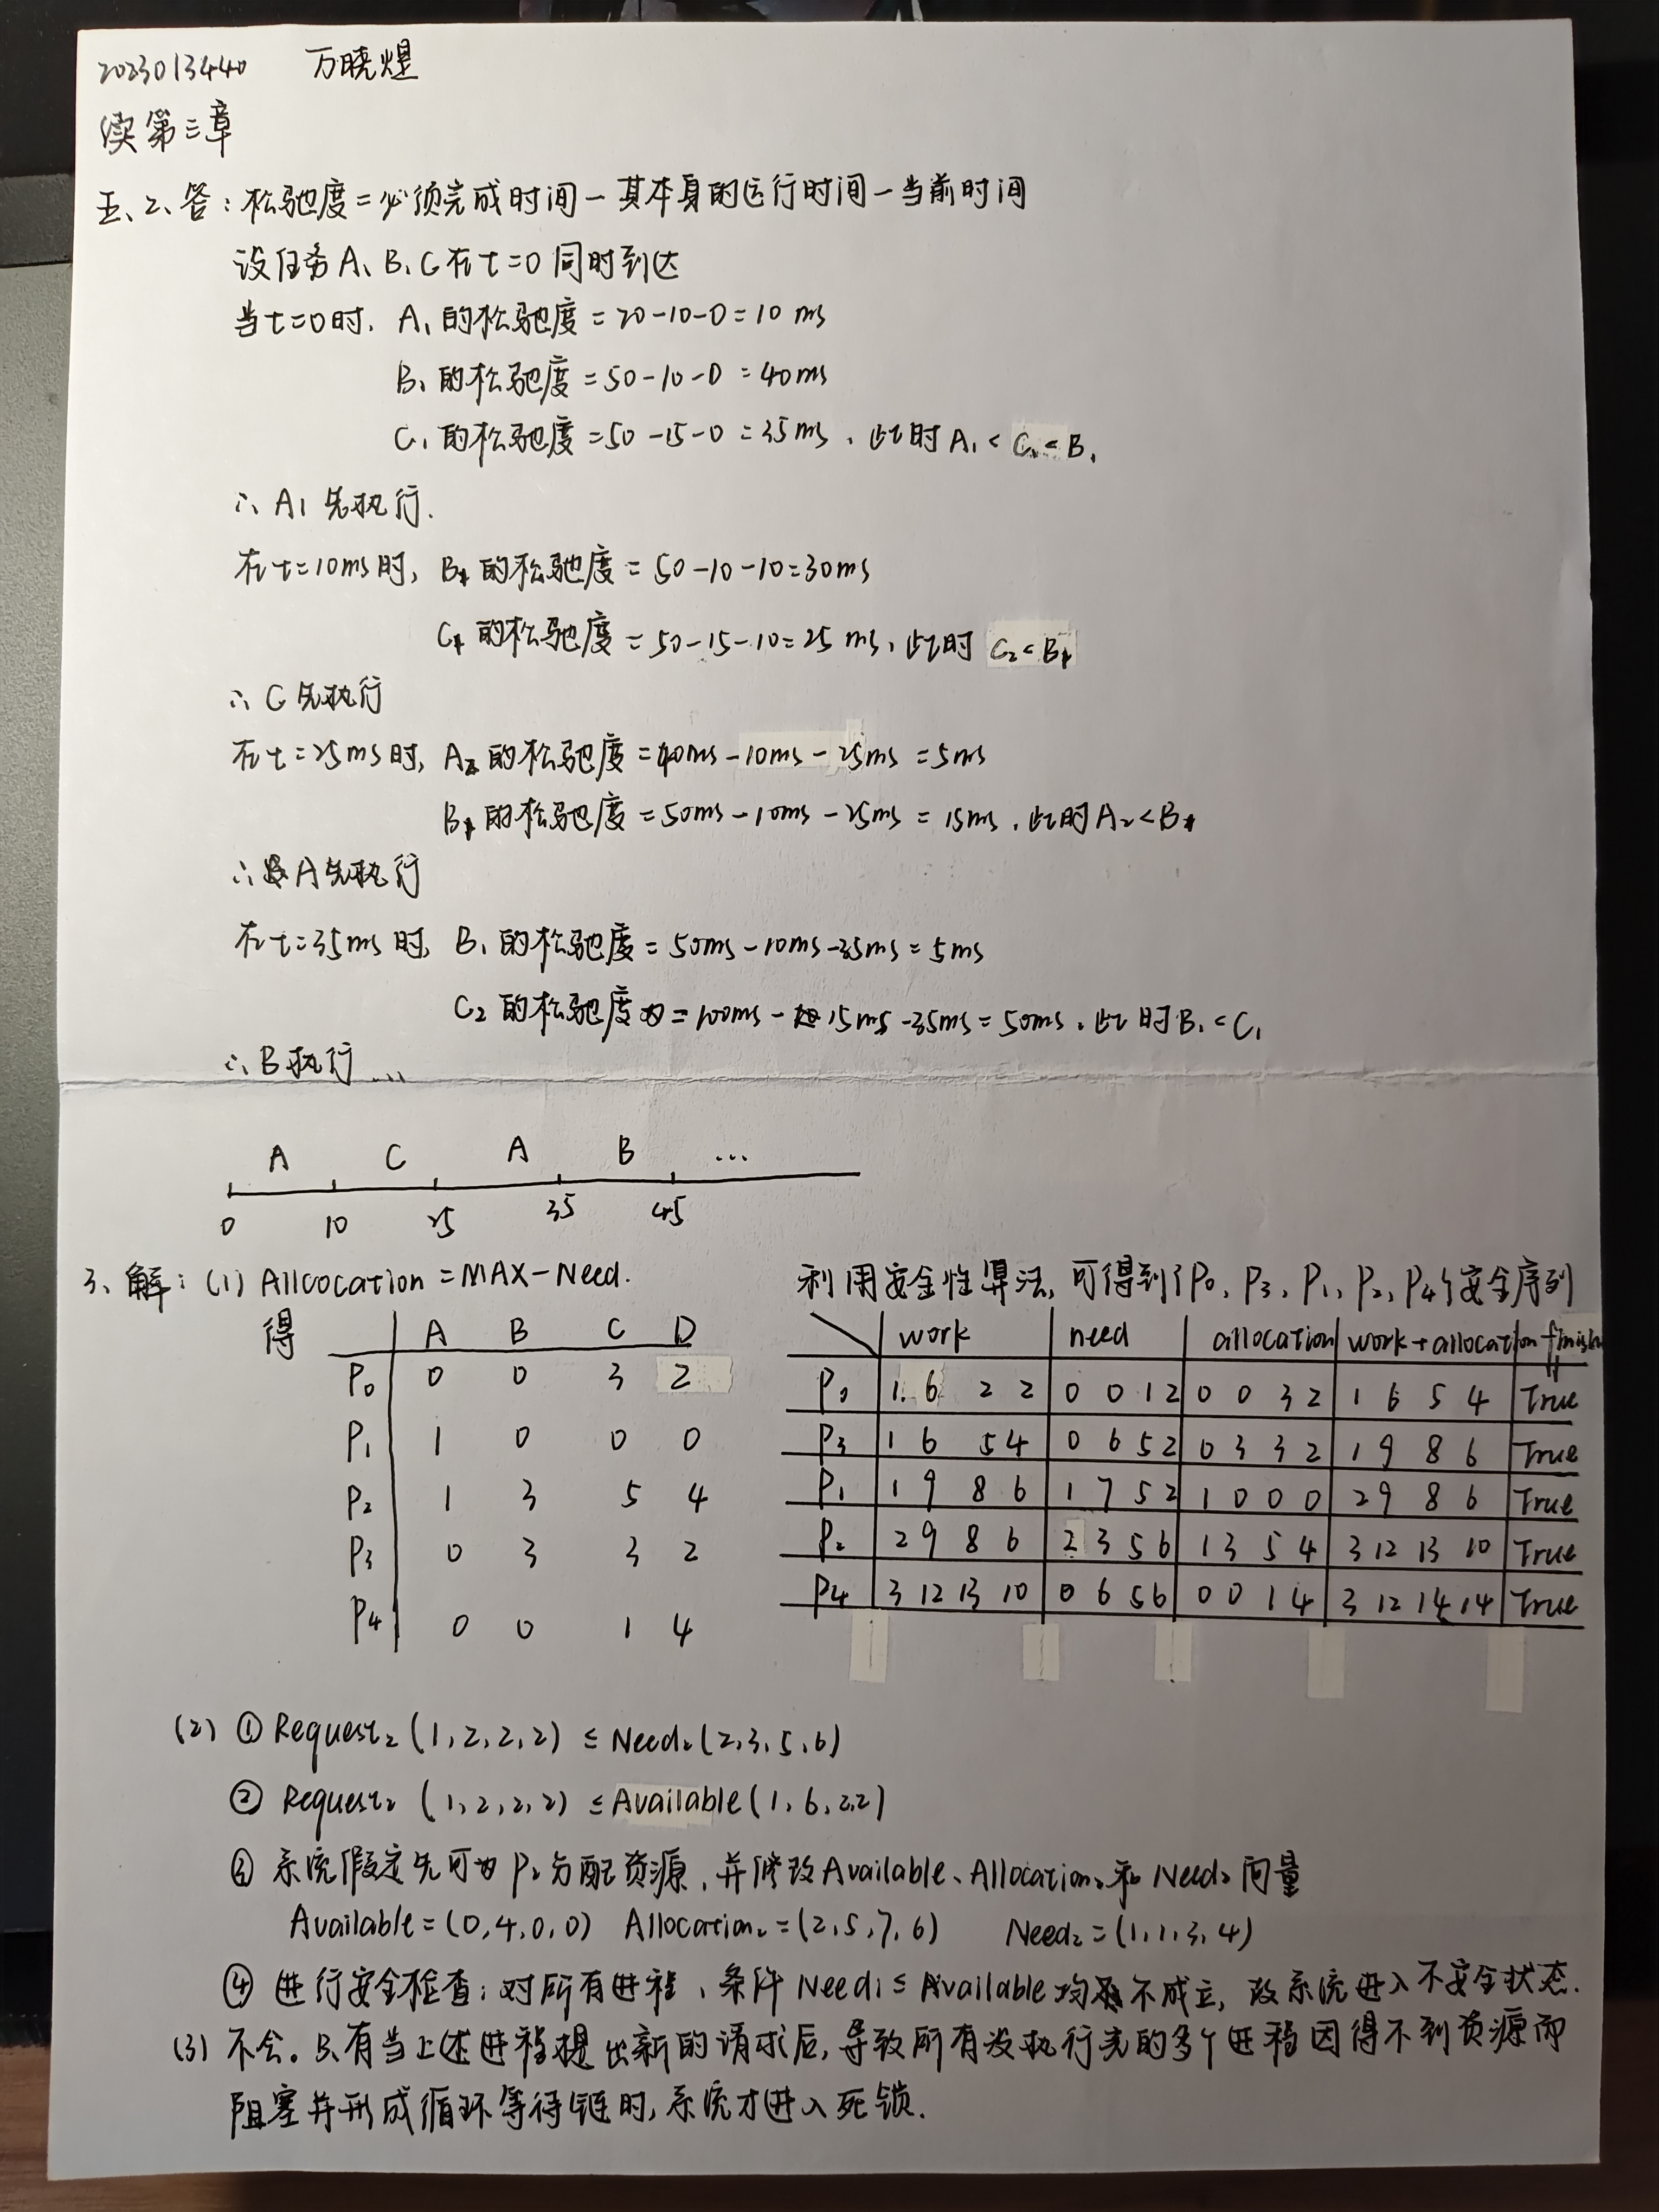 2023013440 万晓煜
续第三章
五、2、答：松弛度=必须完成时间-其本身的运行时间-当前时间
设任务A、B、C在t=0同时到达
当t=0时. A₁的松驰度=20-10-0=10ms
B₁的松驰度=50-10-0=40ms
C₁的松驰度=50-15-0=35ms，此时A₁<C₁<B₁
∴A₁先执行.
在t=10ms时，B₁的松驰度=50-10-10=30ms
C₁的松驰度=50-15-10=25ms，此时C₂<B₁
∴C先执行
在t=25ms时，A₂的松驰度=40ms-10ms-25ms=5ms
B₁的松驰度=50ms-10ms-25ms=15ms，此时A₂<B₁
∴A先执行
在t=35ms时，B₁的松驰度=50ms-10ms-35ms=5ms
C₂的松驰度=100ms-15ms-35ms=50ms，此时B₁<C₁
∴B执行...
A C A B ...
0 10 25 35 45
3、解：(1) Allcocation=MAX-Need.
得 A B C D
P₀ 0 0 3 2
P₁ 1 0 0 0
P₂ 1 3 5 4
P₃ 0 3 3 2
P₄ 0 0 1 4
利用安全性算法，可得到{P₀, P₃, P₁, P₂, P₄}安全序列
work need allocation work+allocation finish
P₀ 1 6 2 2 0 0 1 2 0 0 3 2 1 6 5 4 True
P₃ 1 6 5 4 0 6 5 2 0 3 3 2 1 9 8 6 True
P₁ 1 9 8 6 1 7 5 2 1 0 0 0 2 9 8 6 True
P₂ 2 9 8 6 2 3 5 6 1 3 5 4 3 12 13 10 True
P₄ 3 12 13 10 0 6 5 6 0 0 1 4 3 12 14 14 True
(2) ① Request₂(1,2,2,2) ≤ Need₂(2,3,5,6)
② Request₂(1,2,2,2) ≤ Available(1,6,2,2)
③ 系统假定先可为P₂分配资源，并修改Available、Allocation₂和Need₂向量
Available=(0,4,0,0) Allocation₂=(2,5,7,6) Need₂=(1,1,3,4)
④ 进行安全检查：对所有进程，条件Needi≤Available均不成立，故系统进入不安全状态.
(3) 不会。只有当上述进程提出新的请求后，导致所有没执行完的多个进程因得不到资源而
阻塞并形成循环等待链时，系统才进入死锁.